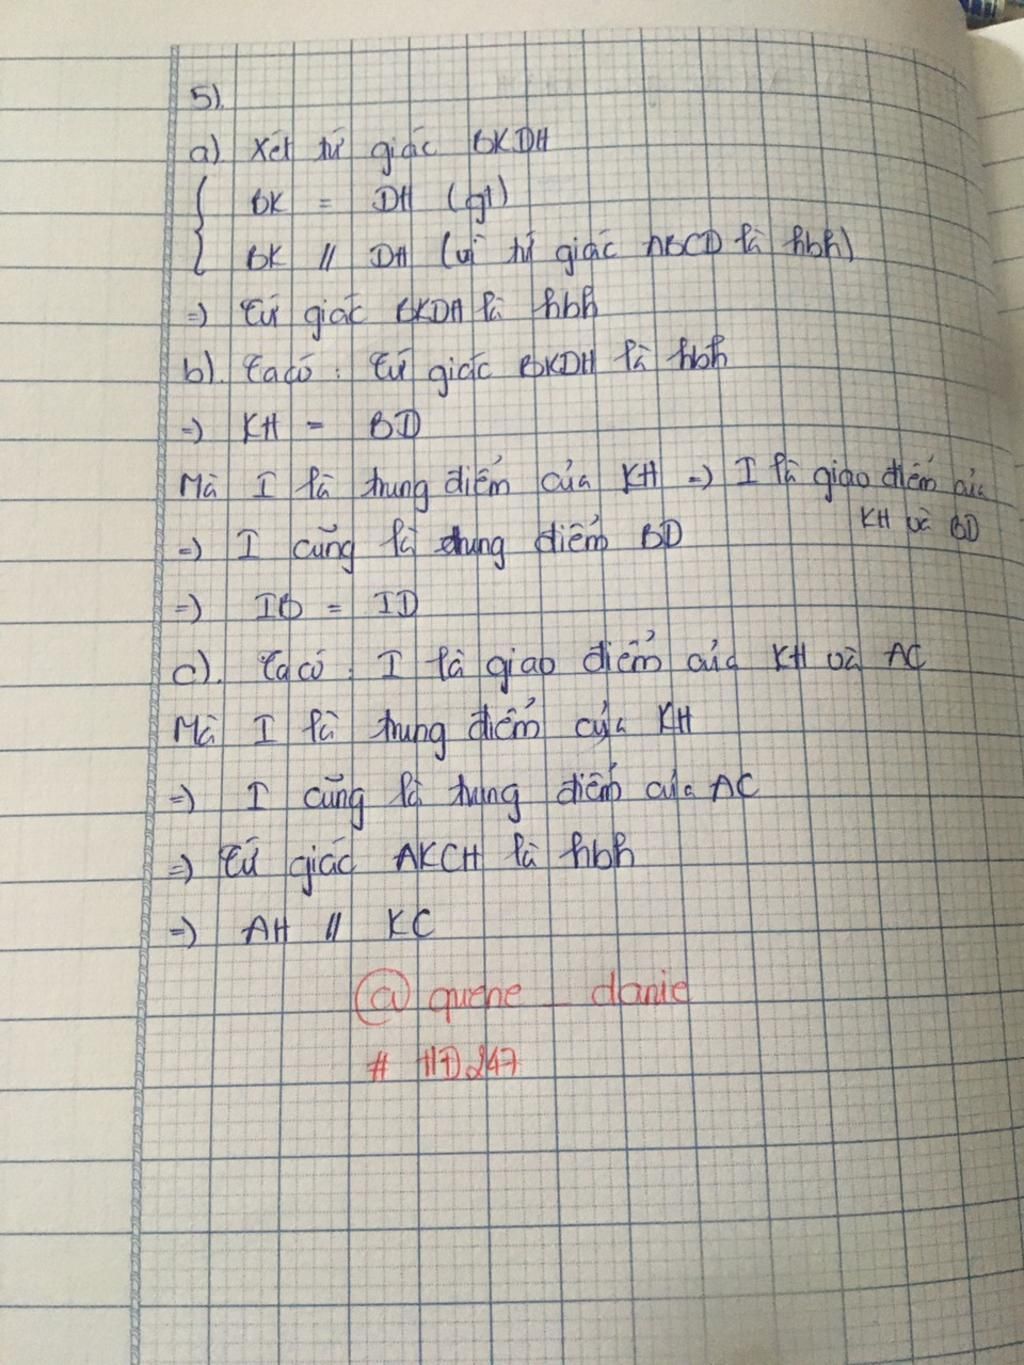 5).
a) Xét tứ giác BKDH
BK = DH (gt)
BK // DH (vì tứ giác ABCD là hbh)
=) Tứ giác BKDH là hbh
b). Ta có : Tứ giác BKDH là hbh
=) KH = BD
Mà I là trung điểm của KH =) I là giao điểm của
KH và BD
=) I cũng là trung điểm BD
=) IB = ID
c). Ta có : I là giao điểm của KH và AC
Mà I là trung điểm của KH
=) I cũng là trung điểm của AC
=) Tứ giác AKCH là hbh
=) AH // KC
@ quene _ danie
# HD247